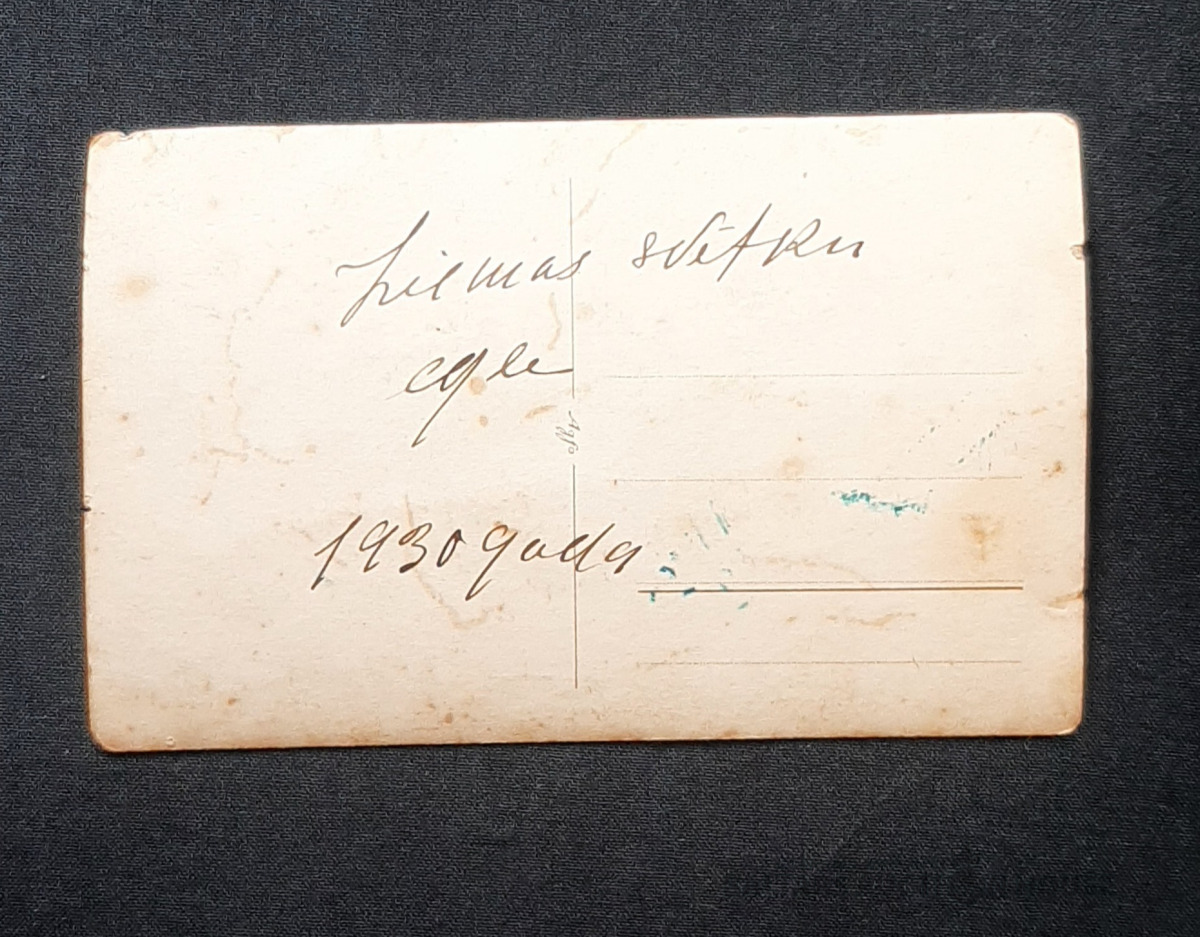 Ziemas svētku
egle
1930 gada